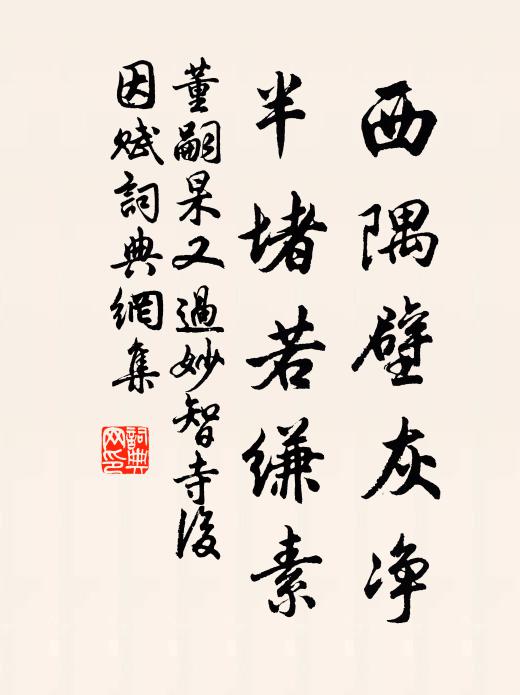 西隅壁灰净
半堵若缣素
董嗣杲又過妙智寺後
因赋詞典網集
詞典
网印